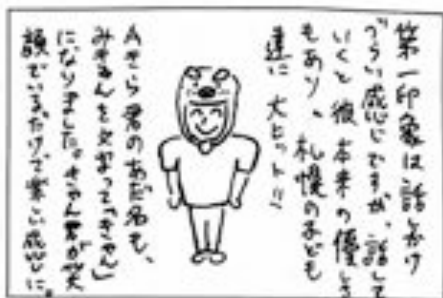 第一印象は話しかけ
づらい感じですが、話して
いくと彼本来の優しさ
もあり、札幌の子ども
達に大ヒット!!
Aきら君のあだ名も、
になりました。きゃん君が笑
顔でいるだけで楽しい感じに。